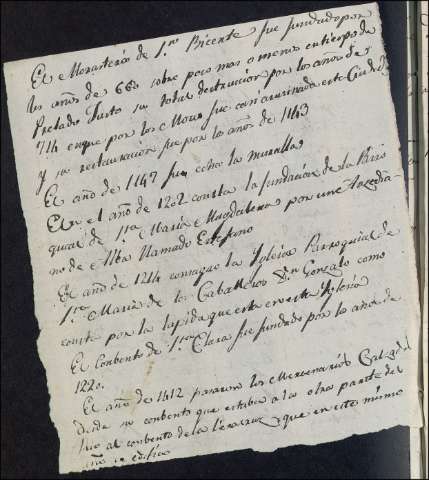 El Monasterio de Sn Bicente fue fundado por
los años de 660 sobre poco mas o menos en tiempo de
Prelado Justo su total destruccion por los años de
714 en que por los Moros fue casi arruinada esta Ciudad
y su restauracion fue por los años de 1143
El año de 1147 fue echa la muralla
En el año de 1202 consta la fundacion de la Parro
quial de Sta Maria Magdalena por un Arzedia
no de Alba llamado Estefano
El año de 1214 consagro la Yglesia Parroquial de
Sta Maria de los Caballeros Dn Gonzalo como
consta por la lapida que esta en esta Yglesia
El Conbento de Sta Clara fue fundado por los años de
1220.
El año de 1412 pasaron los Mercenarios Calzad
desde su conbento que estaba a la otra parte del
rio al conbento de la Veracruz que en este mismo
año se edifico